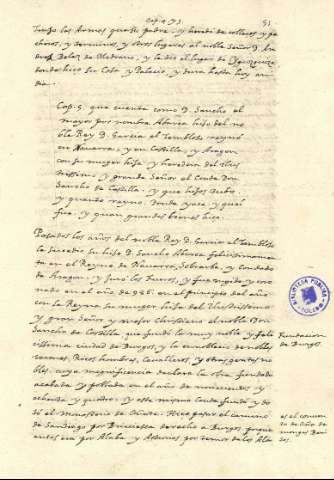 Capi. 93. 51
Tenyo los Armas que su padre, y heredó de collares y pa
cheros, y terminos, y otros lugares al noble Señor D. An
dres Velaz de Medrano, y le dió el lugar de
donde hizo su Coto y Palacio, y dura hasta hoy en
dia.
Cap. 5. que cuenta como D. Sancho el
mayor por nombre Abarca hijo del no
ble Rey D. Garcia el Tembloso reynó
en Navarra, y en Castilla, y Aragon
con su muger hija y heredera del Ilus
trissimo, y grande Señor el Conde Don
Sancho de Castilla. y que hijos hubo
y quando reyno. donde yace, y qual
fue. y quan grandes bienes hizo.
Passados los años del noble Rey D. Garcia el Tembloso
le Sucedio su hijo D. Sancho Abarca felicissimamen
te en el Reyno de Navarra, Sobrarbe, y Condado
de Aragon, y fue ungido y coro
nado en el año de 996. en el principio del año
con la Reyna su muger hija del Ilustrissimo
y gran Señor y mejor Christiano el noble Don
Sancho de Castilla que fundó la muy noble, y fide
cissima ciudad de Burgos, y la ennobleció de nobles
varones, Ricos hombres, Cavalleros, y otras gentes no
bles. cuya magnificencia declara la obra fundada
acabada, y poblada en el año de novecientos, y
ochenta y quatro. y este mismo Conde fundó y do
tó el Monasterio de Oña. Hizo pasar el camino
de Santiago por Briviesca derecho a Burgos porque
antes era por Alaba y Asturias por temor de los Ala
Fundacion
de Burgos.
es el conven
to de Oña de
monges Beni
tos.
BIBLIOTECA PUBLICA
TOLEDO